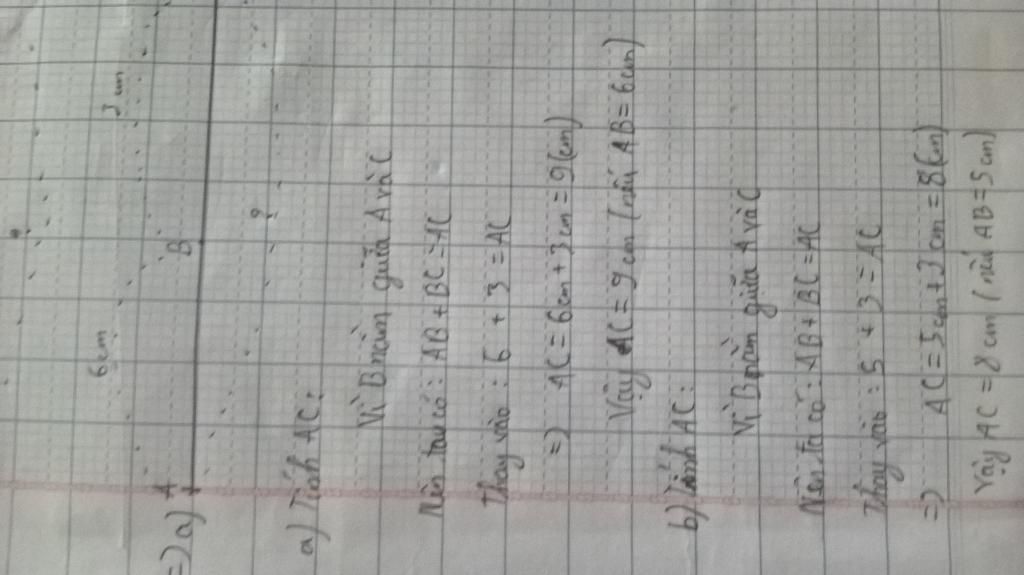 6cm 3 cm
=) a) A B
?
a) Tính AC:
Vì B nằm giữa A và C
Nên ta có: AB + BC = AC
Thay vào: 6 + 3 = AC
=) AC = 6cm + 3 cm = 9 (cm)
Vậy AC = 9 cm (nếu AB = 6 cm)
b) Tính AC:
Vì B nằm giữa A và C
Nên ta có: AB + BC = AC
Thay vào: 5 + 3 = AC
=) AC = 5 cm + 3 cm = 8 (cm)
Vậy AC = 8 cm (nếu AB = 5 cm)